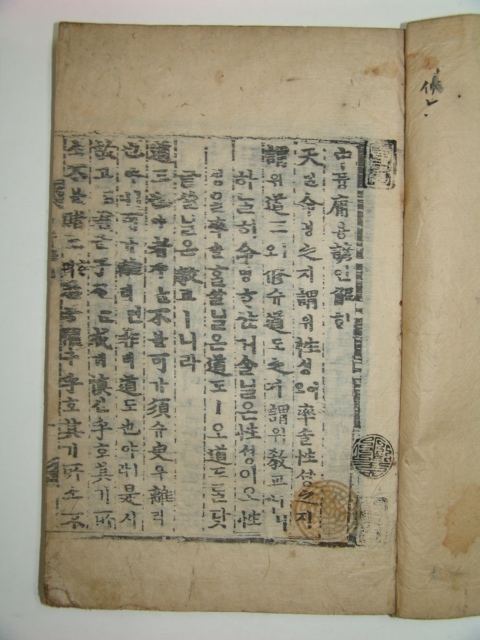 中듕庸용諺언解ᄒᆡ
天텬命명之지謂위性셩이오率솔性셩之지
謂위道도ㅣ오修슈道도之지謂위敎교ㅣ니라
하ᄂᆞᆯ히命명ᄒᆞ샨거ᄉᆞᆯ닐온性셩이오性
셩을率솔홈ᄋᆞᆯ닐온道도ㅣ오道도ᄅᆞᆯ닷
닐온敎교ㅣ니라
道도也야者쟈ᄂᆞᆫ不블可가須슈臾유離리
也야ㅣ니可가離리면非비道도也야ㅣ라是시
故고로君군子ᄌᆞᄂᆞᆫ戒계愼신乎호其기所
소不블睹도ᄒᆞ며恐공懼구乎호其기所소不